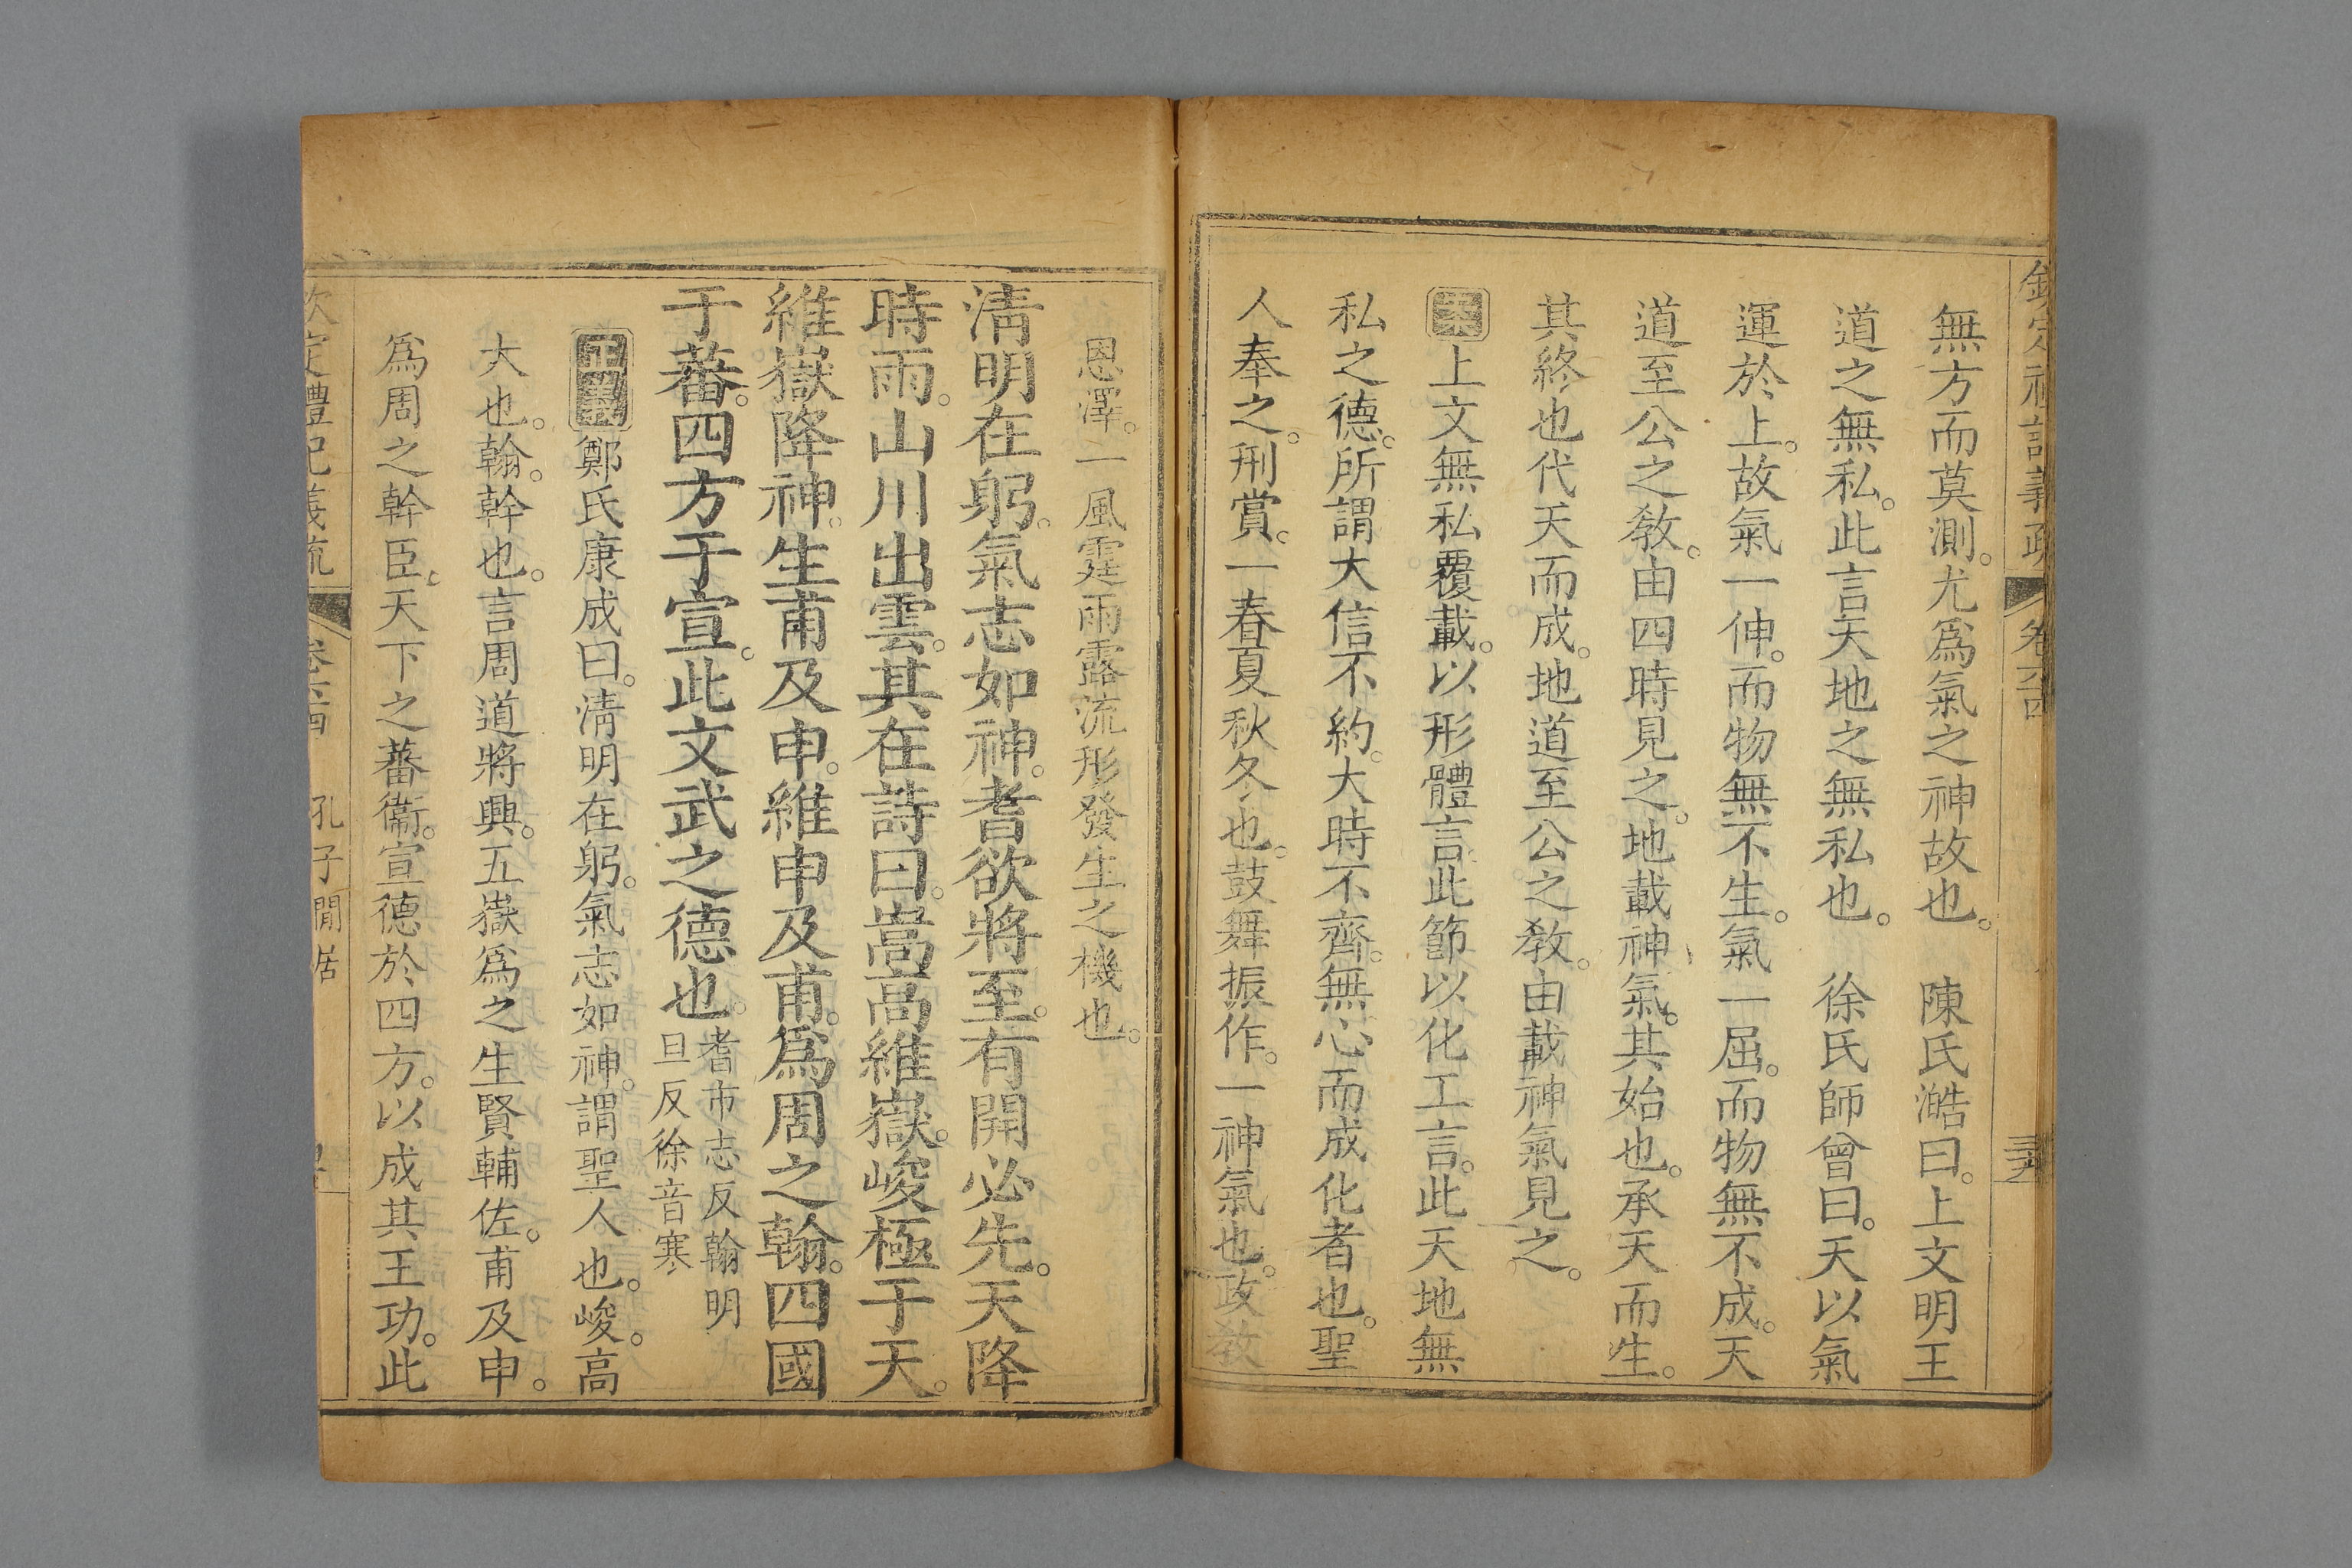 無方而莫測。尤爲氣之神故也。　陳氏澔曰。上文明王
道之無私。此言天地之無私也。　徐氏師曾曰。天以氣
運於上。故氣一伸。而物無不生。氣一屈。而物無不成。天
道至公之敎。由四時見之。地載神氣。其始也。承天而生。
其終也代天而成。地道至公之敎。由載神氣見之。
上文無私覆載。以形體言。此節以化工言。此天地無
私之德。所謂大信不約。大時不齊。無心而成化者也。聖
人奉之。刑賞。一春夏秋冬也。鼓舞振作。一神氣也。政敎
恩澤。一風霆雨露流形發生之機也。
淸明在躬。氣志如神。耆欲將至。有開必先。天降
時雨。山川出雲。其在詩曰。嵩高維嶽。峻極于天。
維嶽降神。生甫及申。維申及甫。爲周之翰。四國
于蕃。四方于宣。此文武之德也。
耆市志反翰明
旦反徐音寒
正義鄭氏康成曰。淸明在躬。氣志如神。謂聖人也。峻。高
大也。翰。幹也。言周道將興。五嶽爲之生賢輔佐。甫及申。
爲周之幹臣。天下之蕃衞。宣德於四方。以成其王功。此
孔子閒居